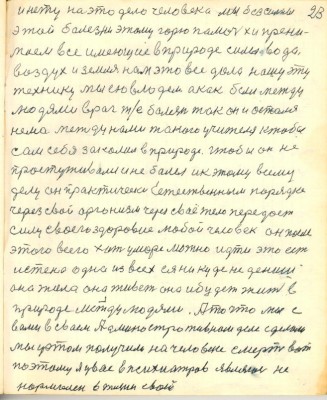 23
и нету на это дело человека мы бессильны
этой болезни этому горю помочь хи прени-
маем все имеющие в природе силы вода,
воздух и земля нам это все дала нашу эту
технику мы с ю людем а как были между
людями враг т/е балезн так он и остался
нема между нами такого учителя чтобы
сам себя закалил в природе чтобы он не
простуживался и не болел и к этому всему
делу он практически Естественным порядка
через свой организм через своё тело передаст
силу своего здоровие любой человек он после
этого всего хот у море можно идти это ест
истена одна из всех ея никуде не дениш
она жила она живет она и будет жит в
природе между людями. А то что мы с
вами в своем Административном деле сделали
мы этом получили на человеке смерть вот
поэтому я у вас в психиатров являюся не
нармален в жизни своей